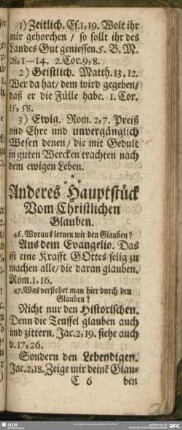 1) Zeitlich. Es. 1, 19. Wolt ihr
mir gehorchen / so sollt ihr des
Landes Gut geniessen. 5. B. M.
28, 1—14. 2. Cor. 9, 8.
2) Geistlich. Matth. 13, 12.
Wer da hat / dem wird gegeben /
daß er die Fülle habe. 1. Cor.
15, 58.
3) Ewig. Rom. 2, 7. Preiß
und Ehre und unvergänglich
Wesen denen / die mit Gedult
in guten Wercken trachten nach
dem ewigen Leben.
Anderes Hauptstück
Vom Christlichen
Glauben.
46. Woraus lernen wir den Glauben?
Aus dem Evangelio. Das
ist eine Krafft GOttes selig zu
machen alle / die daran glauben.
Rom. 1, 16.
47. Was verstehet man hier durch den
Glauben?
Nicht nur den Historischen.
Denn die Teuffel glauben auch
und zittern. Jac. 2, 19. siehe auch
v. 17, 26.
Sondern den Lebendigen.
Jac. 2, 18. Zeige mir deinē Glau-
C 6 ben